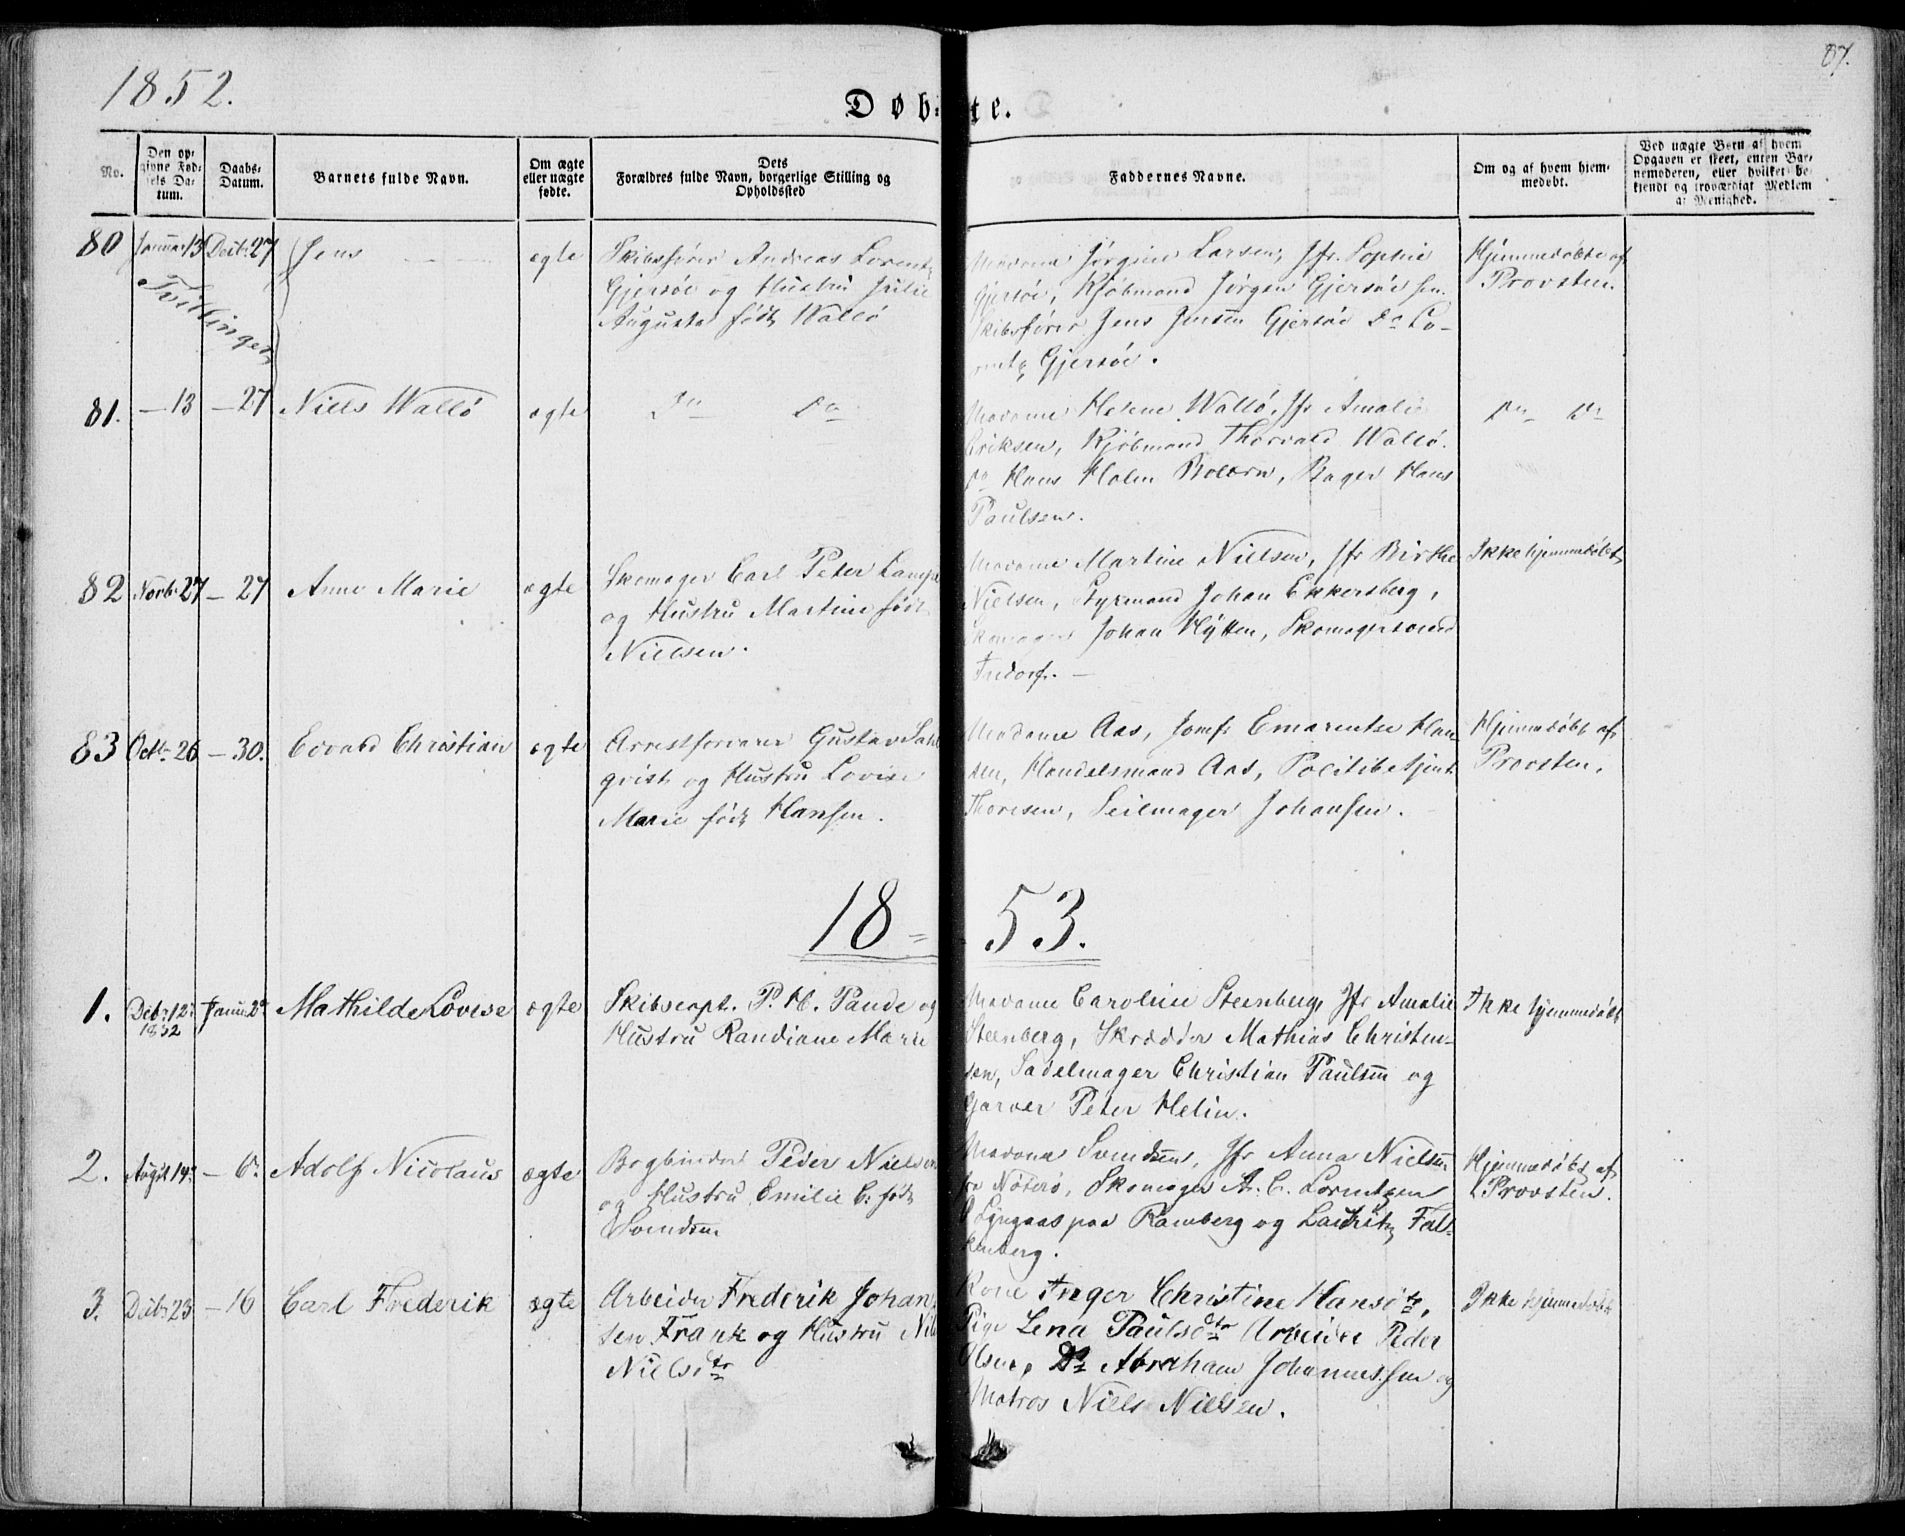 1852.
87.
Døbte.
No.
Den opgivne Fødsels Datum.
Daabs-Datum.
Barnets fulde Navn.
Om ægte eller uægte fødte.
Dets Forældres fulde Navn, borgerlige Stilling og Opholdssted
Faddernes Navne.
Om og af hvem hjemmedøbt.
Ved uægte Børn af hvem Opgaven er skeet, enten Barnemoderen, eller hvilket bekjendt og troværdigt Medlem af Menighed.
80 Januar 13 Decbr 27 Jens ægte
Tvillinger
Skibsfører Andreas Lorentz
Gjersøe og Hustru Julie
Augusta født Wallö
Madame Jørgine Larsen, Jfr. Sophie
Gjersøe, Kjøbmand Jørgen Gjersøe sen.
Skibsfører Jens Jensen Gjersøe Do Lo-
rentz Gjersøe.
Hjemmedøbt af
Provsten.
81. — 13 — 27 Niels Wallö ægte Do Do
Madame Helene Wallö, Jfr Amalie
Eriksen, Kjøbmand Thorvald Wallö.
Do Hans Holm, Bager Hans
Paulsen.
Do Do
82 Novb. 27 — 27 Anne Marie ægte
Skomager Carl Peter
og Hustru Martine født
Nielsen.
Madame Martine Nielsen, Jfr Birthe
Nielsen, Styrmand Johan Ekkersberg,
Skomager Johan Hytten, Skomagersvend
Ikke hjemmedøbt
83 Octb. 26 — 30. Edvard Christian ægte
Arrestforvarer Gustav Dahl-
qvist og Hustru Lovise
Marie født Hansen.
Madame Aas, Jomfr Emarentse Han-
sen, Handelsmand Aas, Politibetjent
Thoresen, Seilmager Johansen.
Hjemmedøbt af
Provsten.
18 = 53.
1. Decbr 12 1852 Januar 2 Mathilde Lovise ægte
Skibscapt. P. H. Pande og
Hustru Randiane Marie
Madame Caroline Steenberg, Jfr Amalie
Steenberg, Skrædder Mathias Christen-
sen, Sadelmager Christian Paulsen og
Garver Peter Helin.
Ikke hjemmedøbt
2. Augst 14 — 6. Adolf Nicolaus ægte
Bogbinder Peder Nielsen
og Hustru Emilie C. født
Svendsen
Madame Svendsen, Jfr Anna Nielsen
fra Nøterø, Skomager A. C. Lorentzen
O Lyngaas paa Ramberg og Lauritz Fal-
kenberg.
Hjemmedøbt af
Provsten.
3. Decbr 23 — 16 Carl Frederik ægte
Arbeider Frederik Johan-
sen Frank og Hustru
Nielsdtr
Kone Inger Christine Hansdtr,
Pige Lena Paulsdtr Arbeider Peder
Olsen, Do Abraham Johannessen og
Matros Niels Nielsen.
Ikke hjemmedøbt